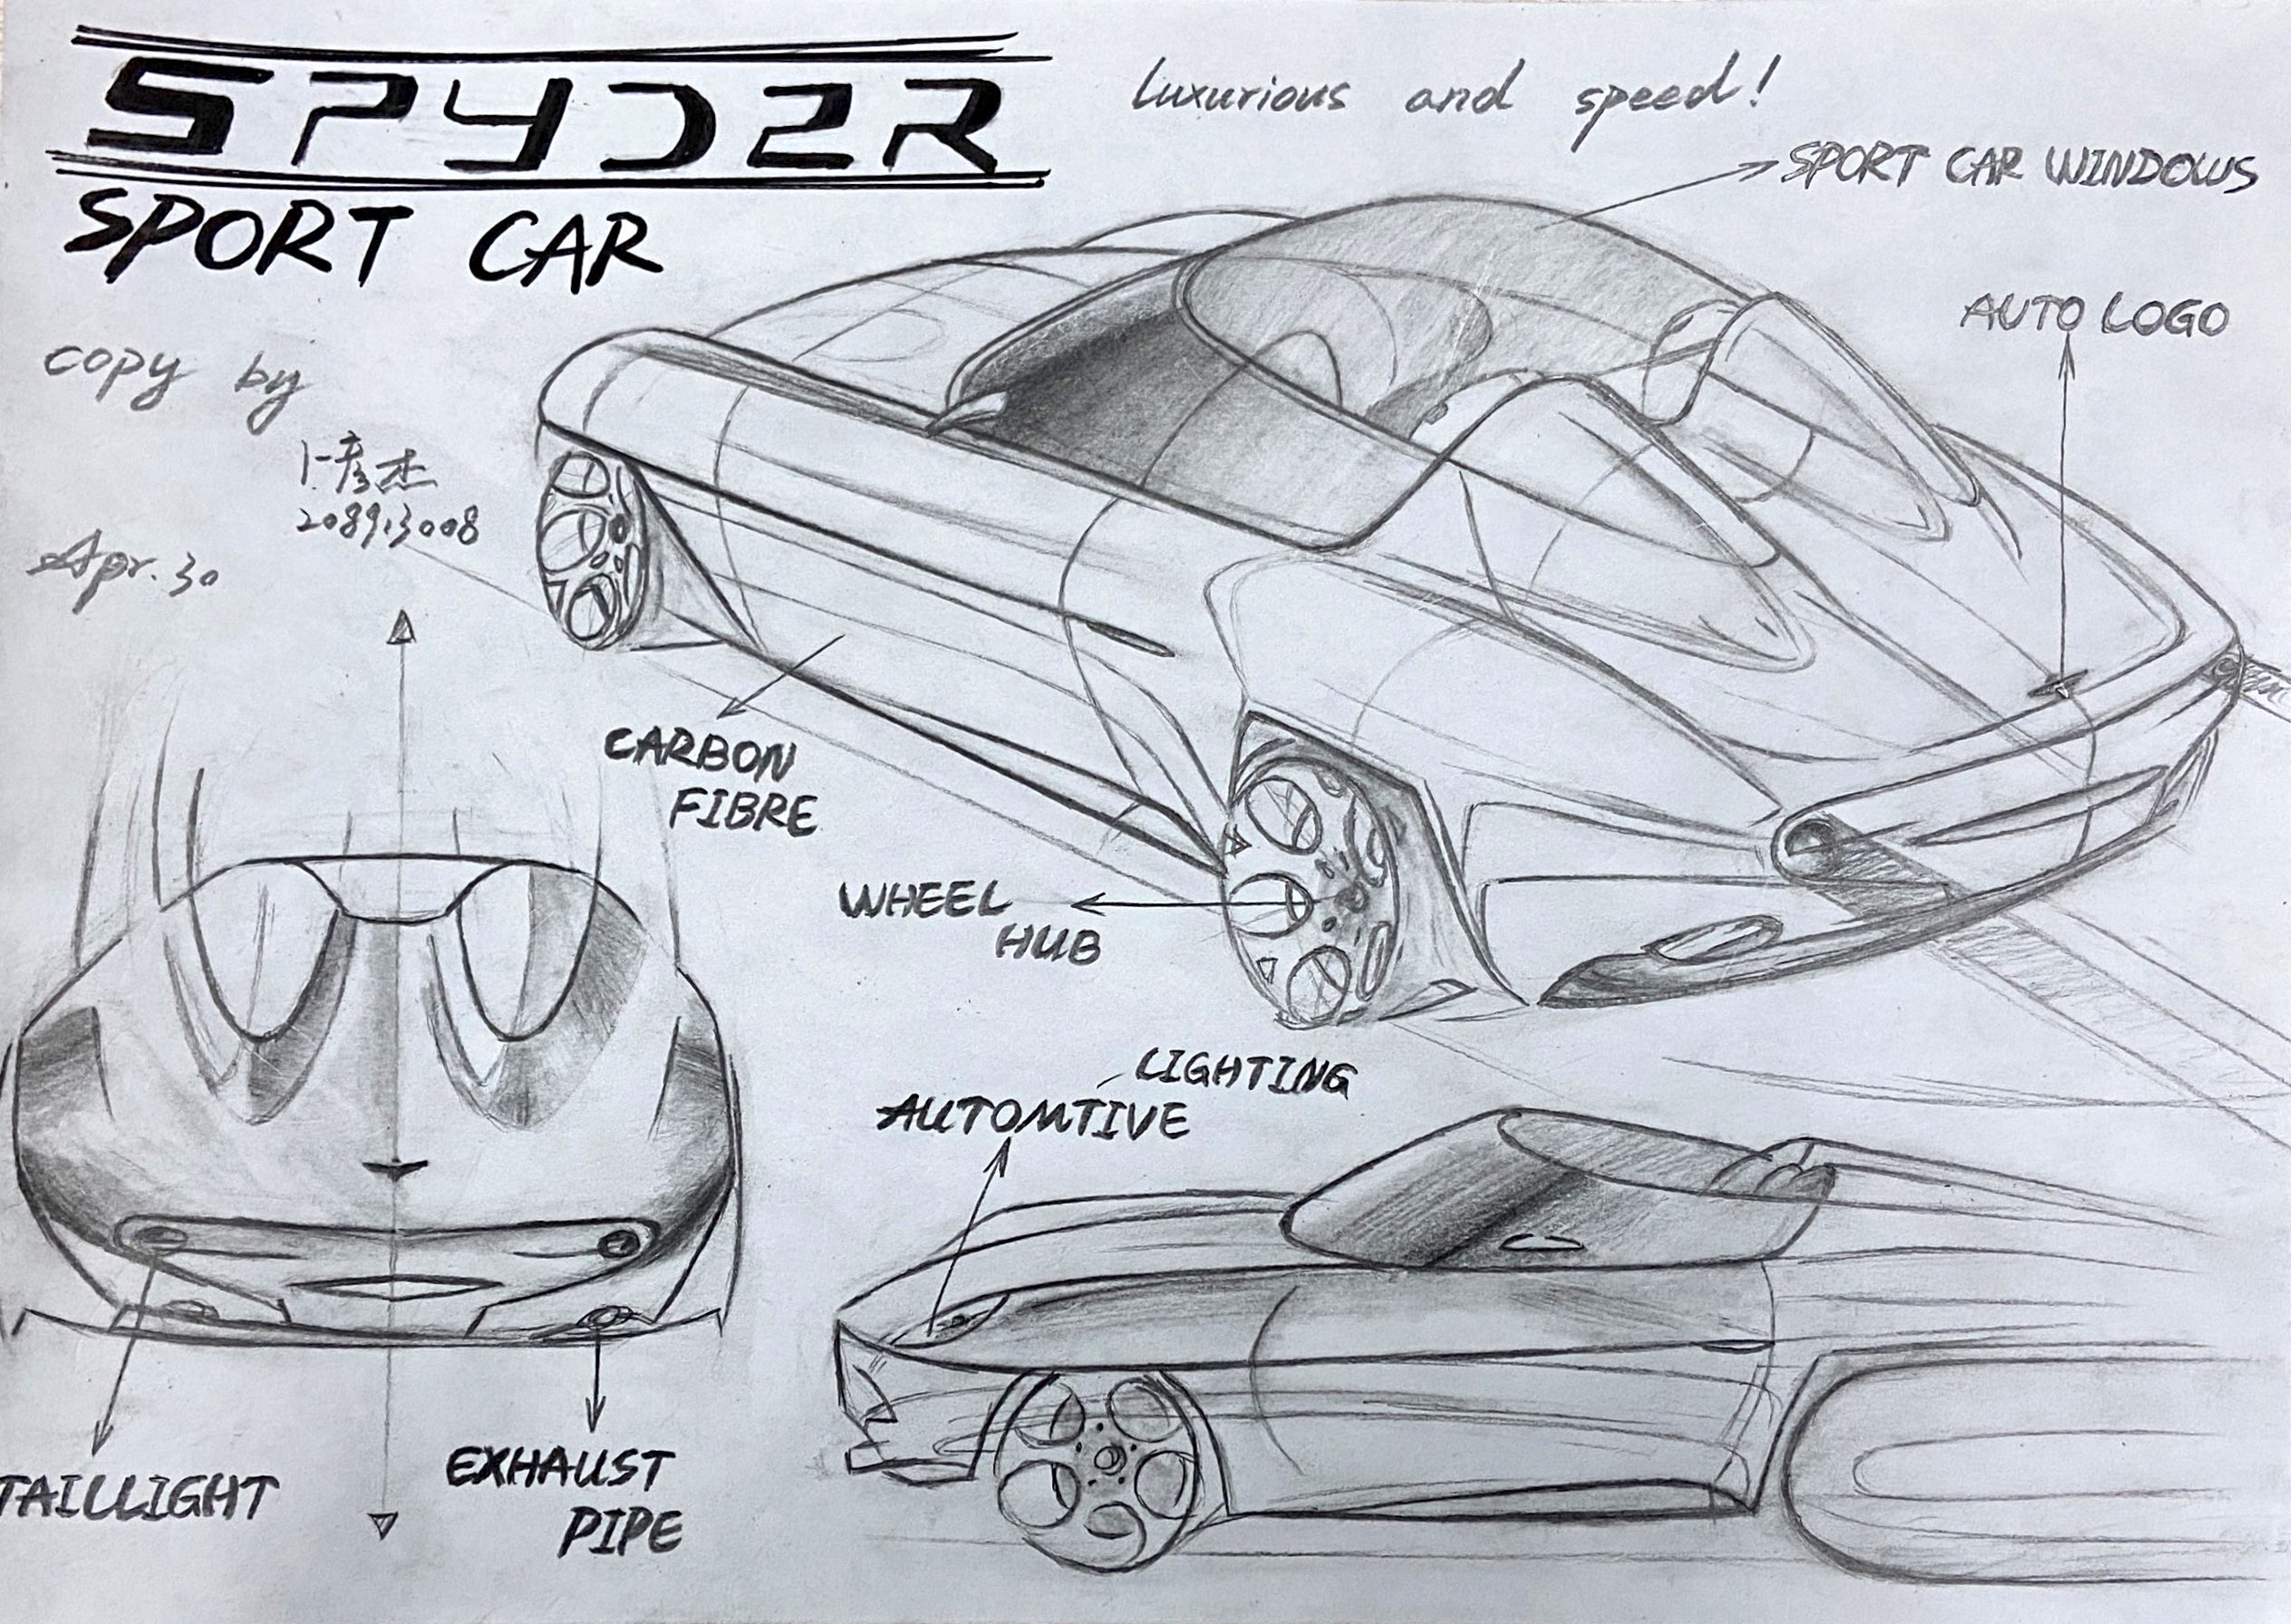 SPYDER
SPORT CAR
Luxurious and speed!
SPORT CAR WINDOWS
AUTO LOGO
copy by
卜彦杰
208913008
Apr. 30
CARBON
FIBRE
WHEEL
HUB
LIGHTING
AUTOMTIVE
TAILLIGHT
EXHAUST
PIPE